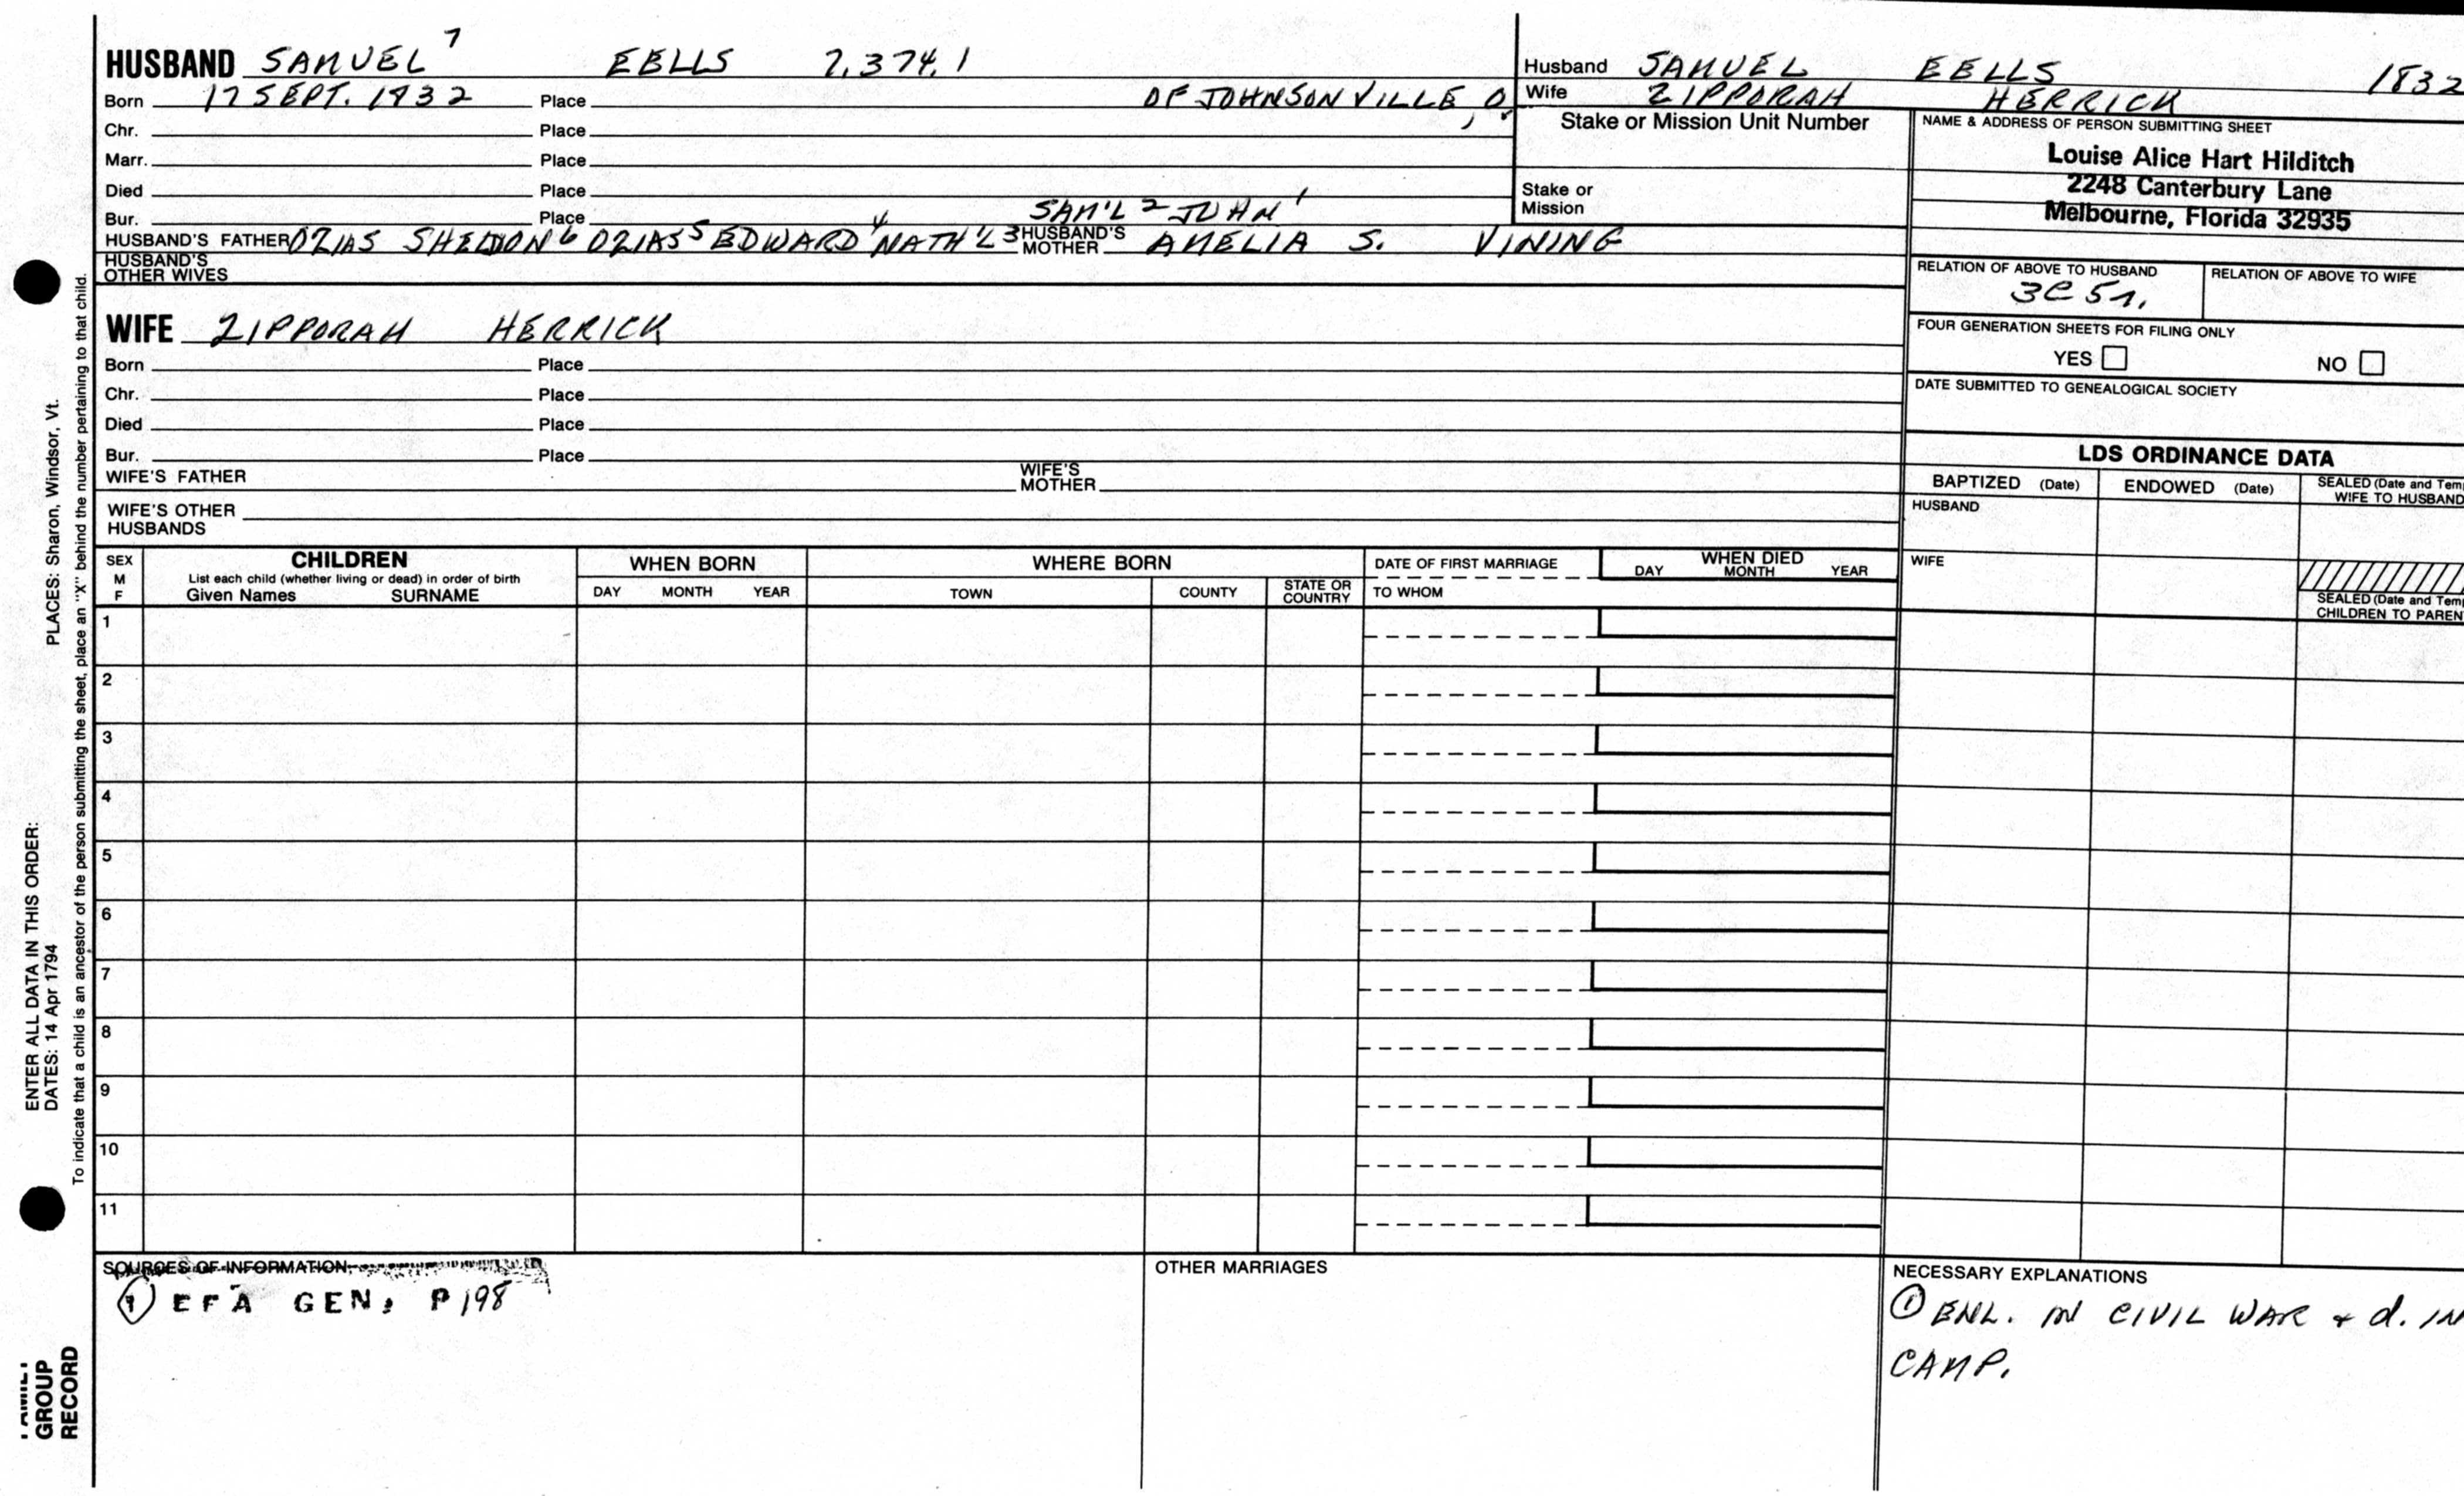 HUSBAND SAMUEL 7 EELLS 7,374.1
Born 17 SEPT. 1832 Place OF JOHNSONVILLE, O.
Chr. Place
Marr. Place
Died Place
Bur. Place SAM'L 2 JOHN 1
HUSBAND'S FATHER OZIAS SHELDON 6 OZIAS 5 EDWARD 4 NATH'L 3 HUSBAND'S MOTHER AMELIA S. VINING
HUSBAND'S OTHER WIVES
WIFE ZIPPORAH HERRICK
Born Place
Chr. Place
Died Place
Bur. Place
WIFE'S FATHER WIFE'S MOTHER
WIFE'S OTHER HUSBANDS
Husband SAMUEL EELLS 1832
Wife ZIPPORAH HERRICK
Stake or Mission Unit Number
Stake or Mission
NAME & ADDRESS OF PERSON SUBMITTING SHEET
Louise Alice Hart Hilditch
2248 Canterbury Lane
Melbourne, Florida 32935
RELATION OF ABOVE TO HUSBAND RELATION OF ABOVE TO WIFE
3C 5r.
FOUR GENERATION SHEETS FOR FILING ONLY
YES NO
DATE SUBMITTED TO GENEALOGICAL SOCIETY
LDS ORDINANCE DATA
BAPTIZED (Date) ENDOWED (Date) SEALED (Date and Tem
WIFE TO HUSBAND
HUSBAND
WIFE
SEALED (Date and Tem
CHILDREN TO PAREN
SEX M F CHILDREN WHEN BORN WHERE BORN DATE OF FIRST MARRIAGE WHEN DIED
List each child (whether living or dead) in order of birth
Given Names SURNAME DAY MONTH YEAR TOWN COUNTY STATE OR COUNTRY TO WHOM DAY MONTH YEAR
1
2
3
4
5
6
7
8
9
10
11
SOURCES OF INFORMATION
1 EFA GEN, P198
OTHER MARRIAGES
NECESSARY EXPLANATIONS
1 ENL. IN CIVIL WAR + d. IN
CAMP.
ENTER ALL DATA IN THIS ORDER:
DATES: 14 Apr 1794 PLACES: Sharon, Windsor, Vt.
To indicate that a child is an ancestor of the person submitting the sheet, place an "X" behind the number pertaining to that child.
GROUP
RECORD